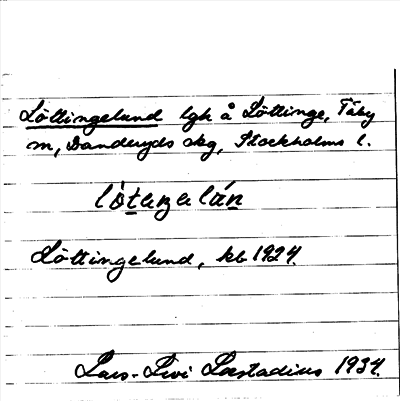 Löttingelund lgh å Löttinge, Täby
sn, Danderyds skg, Stockholms l.
lòtaŋalán
Löttingelund, kb 1924.
Lars-Levi Læstadius 1934.